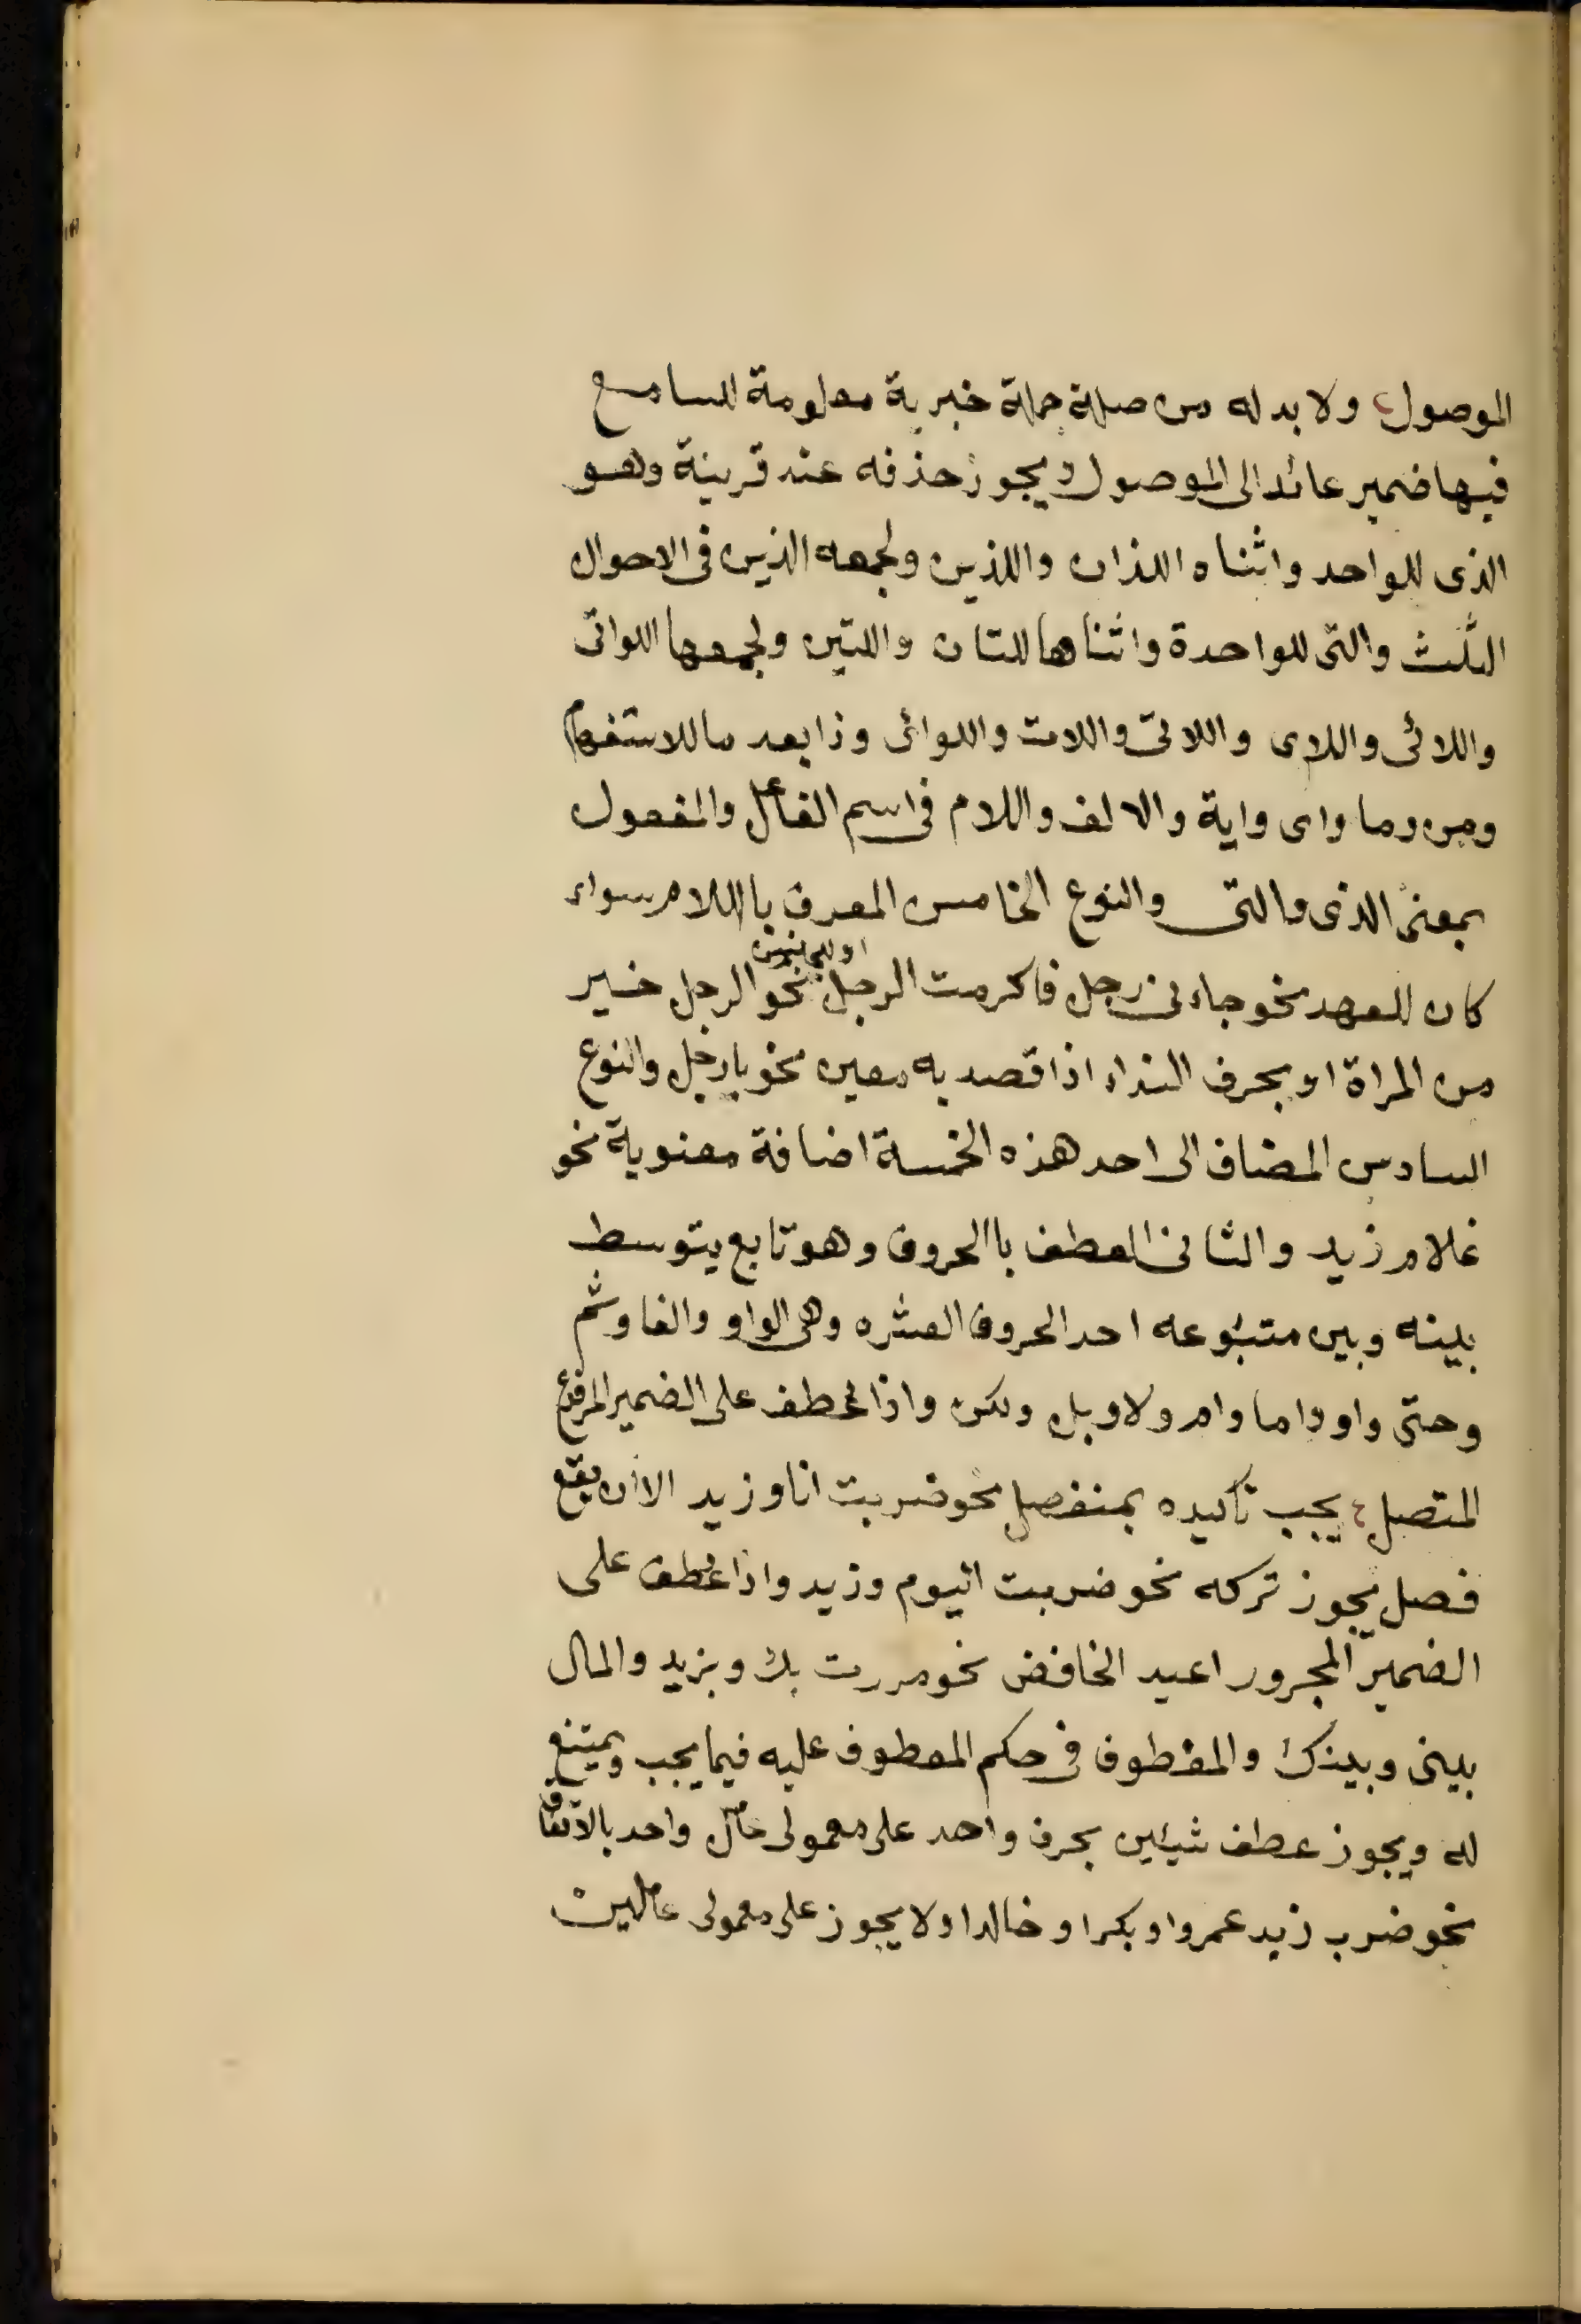 الموصول ولا بد له من صلة جملة خبرية معلومة للسامع
فيها ضمير عائد الى الموصول ويجوز حذفه عند قرينة وهو
الذى للواحد واثناه اللذان واللذين ولجمعه الذين فى الاحوال
الثلث والتى للواحدة واثناها اللتان واللتين ولجمعها اللواتى
واللائى واللاى واللاتى واللات واللوائى وذا بعد ما للاستفهام
ومن وما واى واية والالف واللام فى اسم الفاعل والمفعول
بمعنى الذى والتى والنوع الخامس المعرف باللام سواء
كان للعهد نحو جاءنى رجل فاكرمت الرجل او للجنس نحو الرجل خير
من المراة او بحرف النداء اذا قصد به معين نحو يا رجل والنوع
السادس المضاف الى احد هذه الخمسة اضافة معنوية نحو
غلام زيد والثانى العطف باالحروف وهو تابع يتوسط
بينه وبين متبوعه احد الحروف العشره وهى الواو والفا وثم
وحتى واو واما وام ولا وبل ولكن واذا عطف على الضمير المرفوع
المتصل يجب تاكيده بمنفصل نحو ضربت انا وزيد الا ان يقع
فصل يجوز تركه نحو ضربت اليوم وزيد واذا عطف على
الضمير المجرور اعيد الخافض نحو مررت بك وبزيد والمال
بينى وبينك والمعطوف فى حكم المعطوف عليه فيما يجب ويمتنع
له ويجوز عطف شيئين بحرف واحد على معمولى عامل واحد بالاتفاق
نحو ضرب زيد عمروا وبكرا وخالدا ولا يجوز على معمولى عاملين